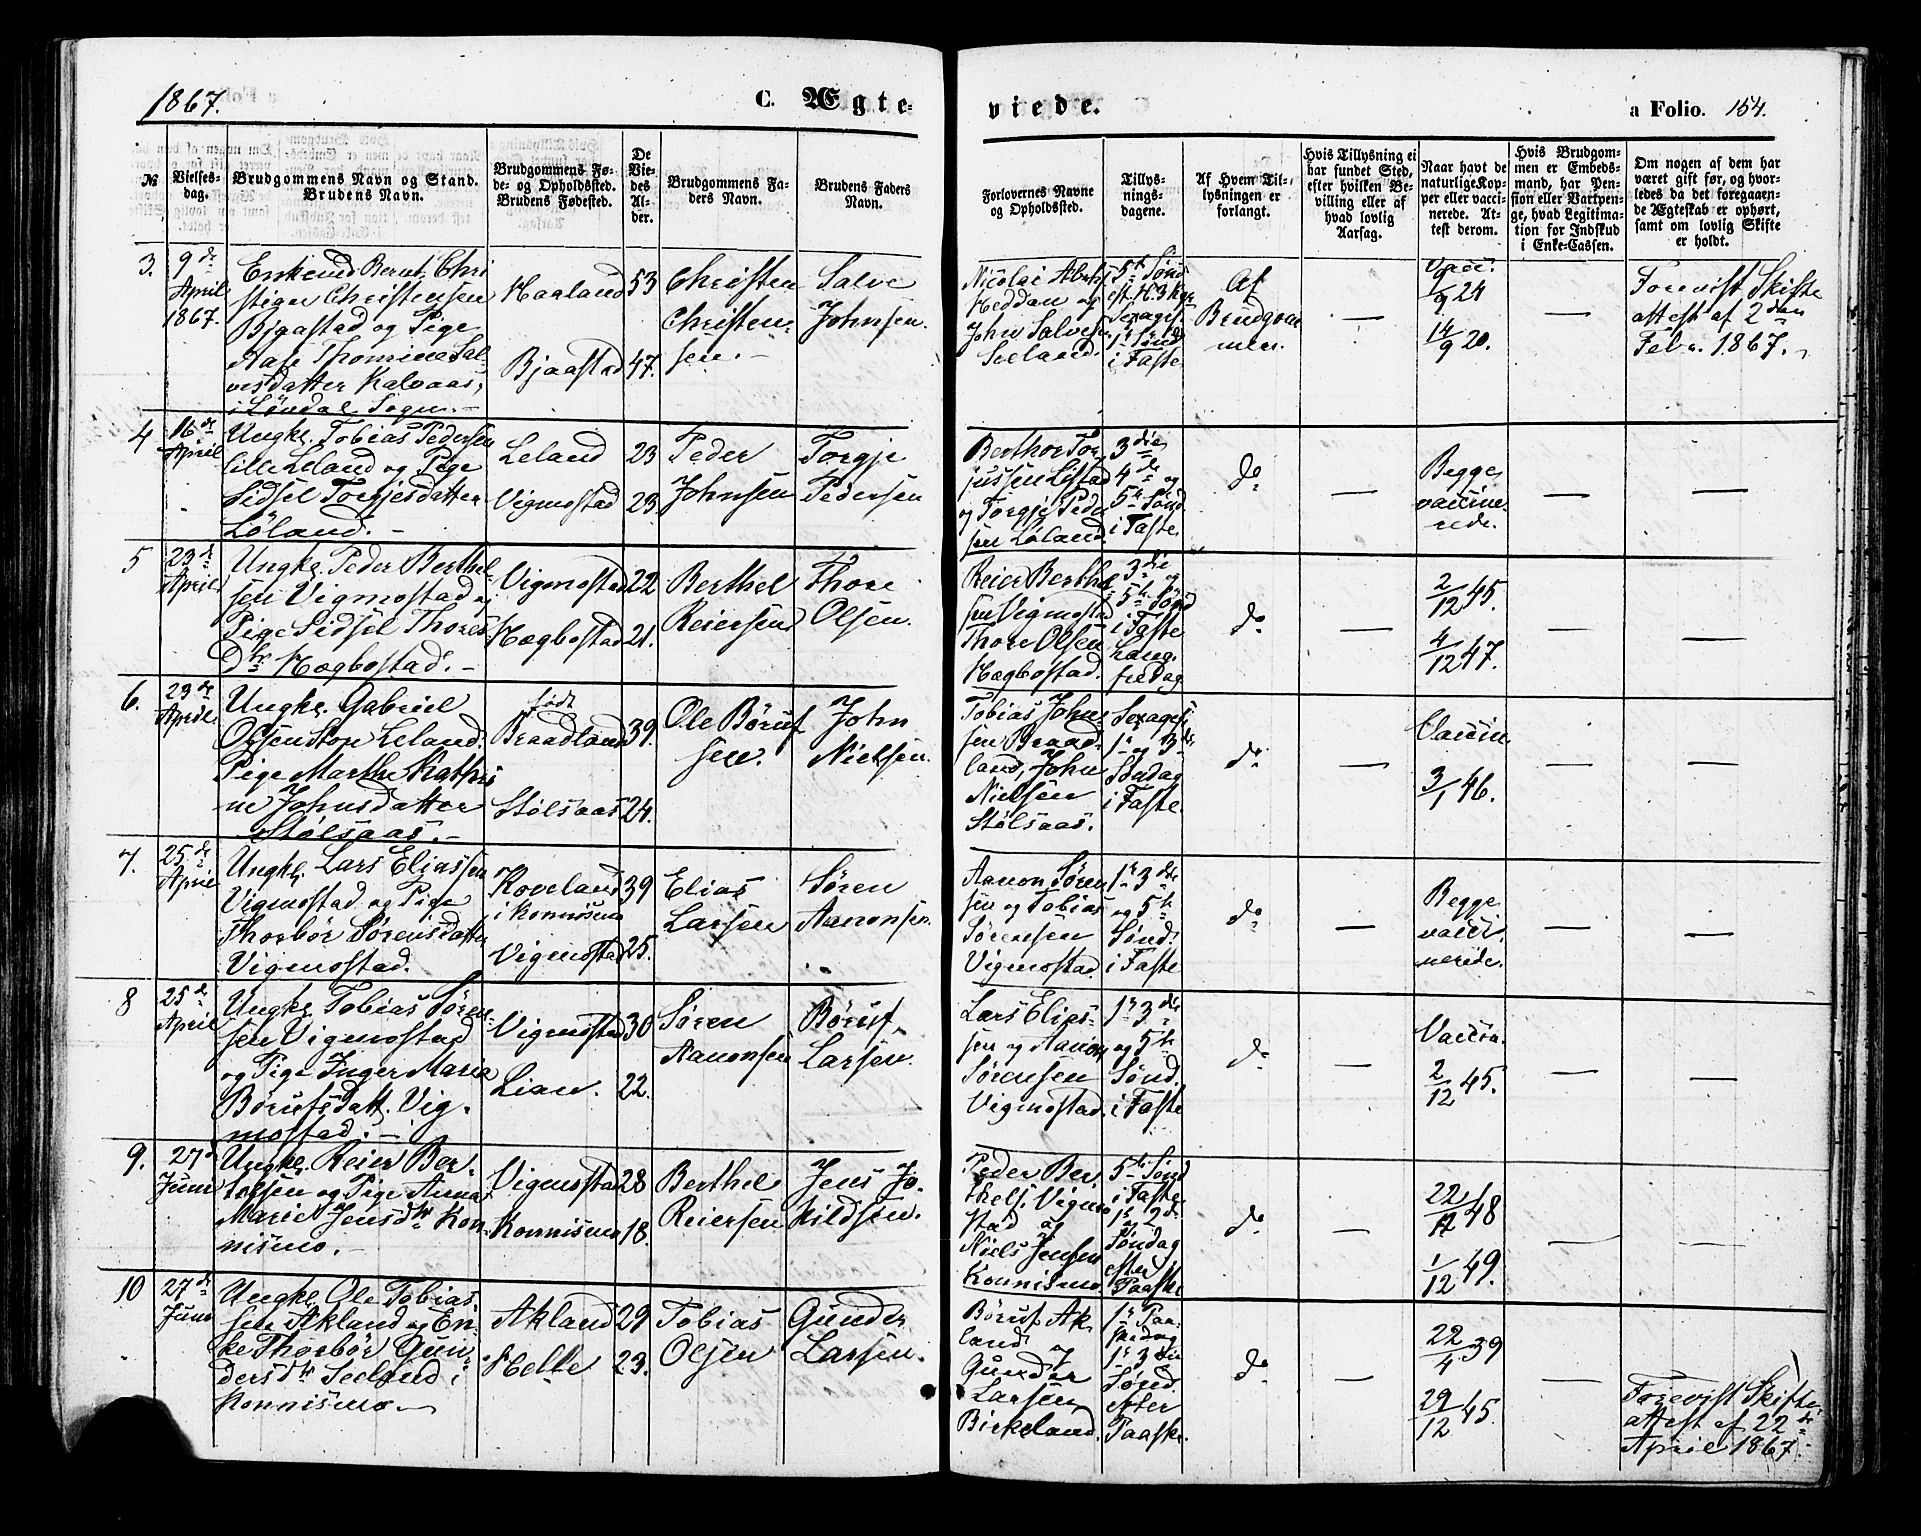 1867.
C. Ægte-
viede.
a Folio. 154.
№
Vielses-
dag.
Brudgommens Navn og Stand.
Brudens Navn.
Brudgommens Fø-
de- og Opholdssted.
Brudens Fødested.
De
Vie-
des
Al-
der.
Brudgommens Fa-
ders Navn.
Brudens Faders
Navn.
Forlovernes Navne
og Opholdssted.
Tillys-
nings-
dagene.
Af Hvem Til-
lysningen er
forlangt.
Hvis Tillysning ei
har fundet Sted,
efter hvilken Be-
villing eller af
hvad lovlig
Aarsag.
Naar havt de
naturlige Kop-
per eller vacci-
nerede. At-
test derom.
Hvis Brudgom-
men er Embeds-
mand, har Pen-
sion eller Vartpen-
ge, hvad Legitima-
tion for Indskud
i Enke-Cassen.
Om nogen af dem har
været gift før, og hvor-
ledes da det foregaaen-
de Ægteskab er ophørt,
samt om lovlig Skifte
er holdt.
3.
9de
April
1867.
Enkemd Bernt Chri
stiger Christensen
Bjaastad og Pige
Aase Thomine Sal
vesdatter Kalvaas,
i Løndal Sogn. -
Haaland 53
Bjaastad 47.
Christen
Christen-
sen. -
Salve
Johnsen.
Nicolai
Heddan og
John Salvesen
Seeland.
5te Sønd
est. H. 3 Kgr
Sexages
1ste Sønd
i Faste
Af
Brudgom
men.
—
Vacc.
1/9 24
14/9 20.
—
Forevist Skifte
attest af 2den
Febr. 1867.
4
16de
April
Ungkl. Tobias Pedersen
lille Leland og Pige
Sidsel Torgjesdatter
Løland. -
Leland 23
Vigmostad 23.
Peder
Johnsen
Torgje
Pedersen
Berthor Tor
jussen Lestad
og Torgje Peder
sen Løland.
3die
4de og
5te Sønd
i Faste.
do
—
Begge
vaccine-
rede.
—
—
5
23de
April
Ungkl. Peder Berthel-
sen Vigmostad og
Pige Sidsel Thores
Dtr Hægbostad. -
Vigmostad 22
Hægbostad 21.
Berthel
Reiersen
Thore
Olsen.
Reier Berthel
sen Vigmostad
Thore Olsen
Hægbostad.
3die og
5te Sønd
i Faste
Lang.
fredag
do
—
2/12 45.
4/12 47.
—
—
6.
23de
April.
Ungkl. Gabriel
Olsen Store Leland.
Pige Marthe Kathri
ne Johnsdatter
Stølsaas. -
født
Braadland 39.
Stølsaas 24.
Ole Børuf
sen.
John
Nielsen.
Tobias John-
sen Braad-
land, John
Nielsen
Stølsaas.
Sexagesi
1ste og 3die
Søndag
i Faste
do
—
Vaccin.
3/1 46.
—
—
7.
25de
April
Ungkl. Lars Eliassen
Vigmostad og Pige
Thorbør Sørensdatter
Vigmostad.
Koveland 39
i Konnismo
Vigmostad 25.
Elias
Larsen
Søren
Aanonsen.
Aanon Søren
sen og Tobias
Sørensen
Vigmostad.
1ste 3die
og 5te
Sønd.
i Faste
do
—
Begge
vacci-
nerede.
—
—
8
25de
April
Ungkl. Tobias Søren-
sen Vigmostad
og Pige Inger Maria
Børufsdatt. Vig-
mostad. -
Vigmostad 30
Lian. 22.
Søren
Aanonsen
Børuf
Larsen
Lars Elias-
sen og Aanon
Sørensen
Vigmostad.
1ste 3die
og 5te
Sønd.
i Faste
do
—
Vaccin.
2/12 45.
—
—
9.
27d
Juni
Ungkl. Reier Ber-
telsen og Pige Anna
Marie Jensdtr Kon-
nismo. -
Vigmostad 28
Konnismo 18.
Berthel
Reiersen
Jens Jo-
kildsen.
Peder Ber
thels. Vigmo
stad og
Niels Jensen
Konnismo.
5te Sønd
i Faste
1ste og 2den
Søndag
efter
Paaske
do
—
22/12 48
1/12 49.
—
—
10
27de
Juni
Ungkl. Ole Tobias-
sen Akland og En-
ke Thorbør Gun-
dersdtr Seeland i
Konnismo. -
Akland 29
Helle 23.
Tobias
Olsen
Gunder
Larsen.
Børuf Ak-
land og
Gunder
Larsen
Birkeland.
1ste Paa-
skedag
1ste 3die
Sønd.
efter
Paaske.
do
—
22/4 39
29/12 45.
—
Forevist Skifte
attest af 22de
April 1867.